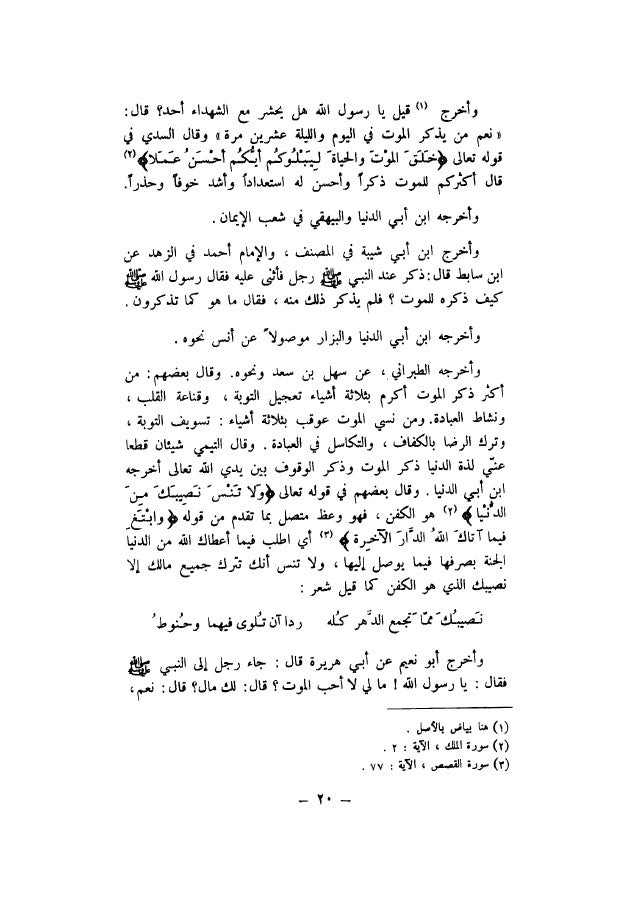 وأخرج (١) قيل يا رسول الله هل يحشر مع الشهداء أحد؟ قال:
« نعم من يذكر الموت في اليوم والليلة عشرين مرة » وقال السدي في
قوله تعالى ﴿خَلَقَ الموْتَ والحياةَ لِيَبْلُوَكُم أيُّكُم أحْسَنُ عَمَلا﴾(٢)
قال أكثركم للموت ذكراً وأحسن له استعداداً وأشد خوفاً وحذراً.
وأخرجه ابن أبي الدنيا والبيهقي في شعب الإيمان .
وأخرج ابن أبي شيبة في المصنف ، والإمام أحمد في الزهد عن
ابن سابط قال: ذكر عند النبي ﷺ رجل فأثنى عليه فقال رسول الله ﷺ
كيف ذكره للموت ؟ فلم يذكر ذلك منه ، فقال ما هو كما تذكرون .
وأخرجه ابن أبي الدنيا والبزار موصولاً عن أنس نحوه .
وأخرجه الطبراني ، عن سهل بن سعد ونحوه. وقال بعضهم: من
أكثر ذكر الموت أكرم بثلاثة أشياء تعجيل التوبة ، وقناعة القلب ،
ونشاط العبادة. ومن نسي الموت عوقب بثلاثة أشياء : تسويف التوبة ،
وترك الرضا بالكفاف ، والتكاسل في العبادة . وقال التيمي شيئان قطعا
عنّي لذة الدنيا ذكر الموت وذكر الوقوف بين يدي الله تعالى أخرجه
ابن أبي الدنيا . وقال بعضهم في قوله تعالى ﴿وَلا تَنْسَ نَصِيبَكَ مِنَ
الدُّنْيا﴾ (٢) هو الكفن ، فهو وعظ متصل بما تقدم من قوله ﴿ وابْتَغِ
فيما آتاكَ اللهُ الدَّارَ الآخِرة ﴾ (٣) أي اطلب فيما أعطاك الله من الدنيا
الجنة بصرفها فيما يوصل إليها ، ولا تنس أنك تترك جميع مالك إلا
نصيبك الذي هو الكفن كما قيل شعر :
نَصيبُكَ ممّا تجمع الدَّهر كُله ردا آن تُلوى فيهما وحُنوطُ
وأخرج أبو نعيم عن أبي هريرة قال : جاء رجل إلى النبي ﷺ
فقال : يا رسول الله ! ما لي لا أحب الموت ؟ قال: لك مال؟ قال: نعم،
(١) هنا بياض بالأصل .
(٢) سورة الملك ، الآية : ٢ .
(٣) سورة القصص ، الآية : ٧٧ .
– ٢٠ –